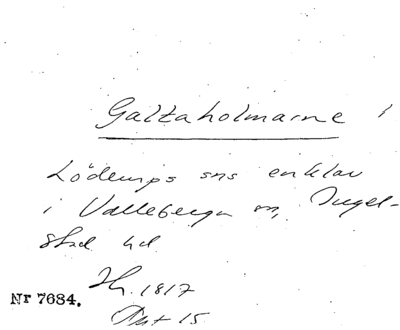 Galtaholmarne i
Löderups sns enklav
i Valleberga sn, Ingel-
stad hd
Nr 7684.
1817
15